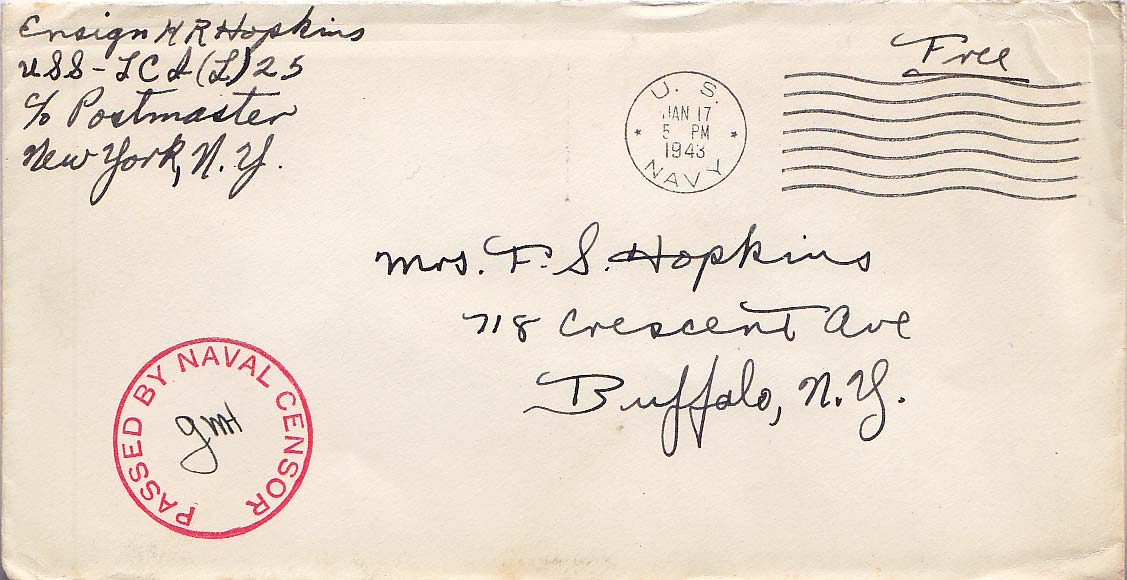 Ensign H R Hopkins
USS-LCI(L)25
c/o Postmaster
New York, N.Y.
Free
U. S.
JAN 17
5 PM
1943
NAVY
Mrs. F. S. Hopkins
718 Crescent Ave
Buffalo, N.Y.
PASSED BY NAVAL CENSOR
gmH